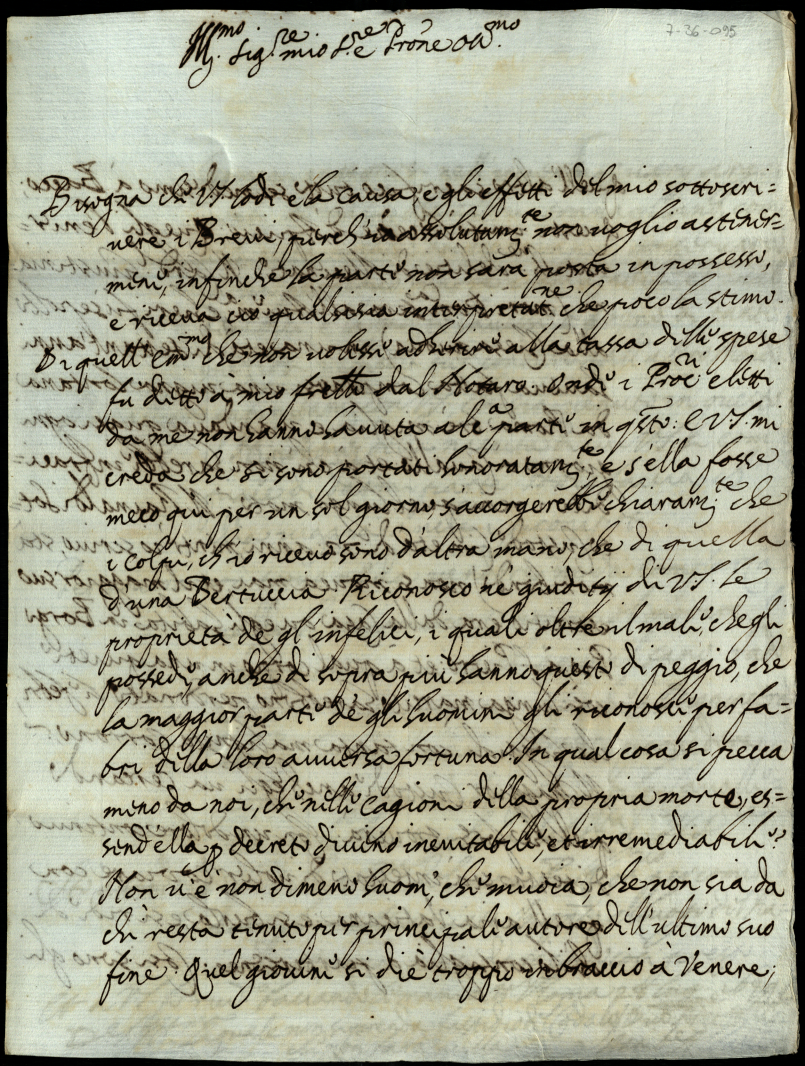 7-36-095
Ill.mo Sig.re mio S.re e Prone oss.mo
Bisogna che V.S. lodi e la causa, e gli effetti del mio sottoscri=
uere i Breui, perch'io assolutam.te non uoglio astener=
mene, infinche la parte non sarà posta in possesso,
e riceua ciò qualsisia interpretat.ne che poco la stimo.
Di quell'Em.mo che non uolesse adherire alla tassa delle spese
fu detto à mio frello dal Notaro. Onde i Proc.ri eletti
da me non hanno hauuta alc.a parte in qsto: e V.S. mi
creda che si sono portati honoratam.te, e s'ella fosse
meco qui per un sol giorno s'accorgerebbe chiaram.te che
i colpi, ch'io riceuo sono d'altra mano, che di quella
d'una Bertuccia. Riconosco ne' giuditij di V.S. le
proprietà de gl'infelici, i quali oltre il male, che gli
possede, anche di sopra più hanno questo di peggio, che
la maggior parte de gli huomini gli riconosce per fa=
bri della loro auuersa fortuna. In qual cosa si pecca
meno da noi, che nelle cagioni della propria morte, es=
send'ella p decreto diuino ineuitabile, et irremediabile?
Non u'è non dimeno huom', che muoia, che non sia da
chi resta tenuto per principale autore dell'ultimo suo
fine. Quel giouine si diè troppo in braccio à Venere;